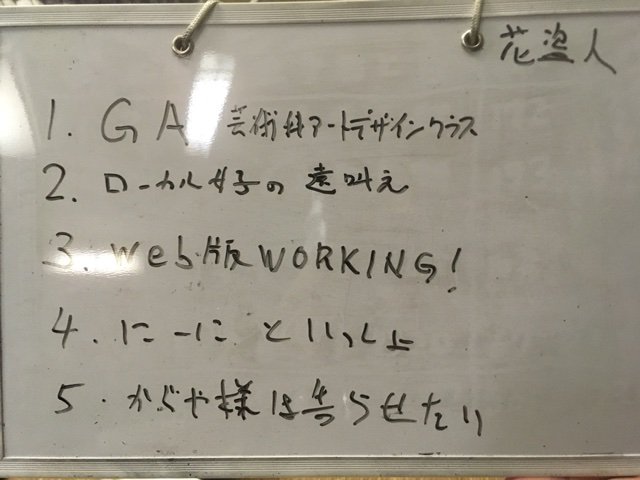 花盗人
1. GA 芸術科アートデザインクラス
2. ローカル女子の遠叫え
3. Web版 WORKING!
4. にーにといっしょ
5. かぐや様は告らせたい